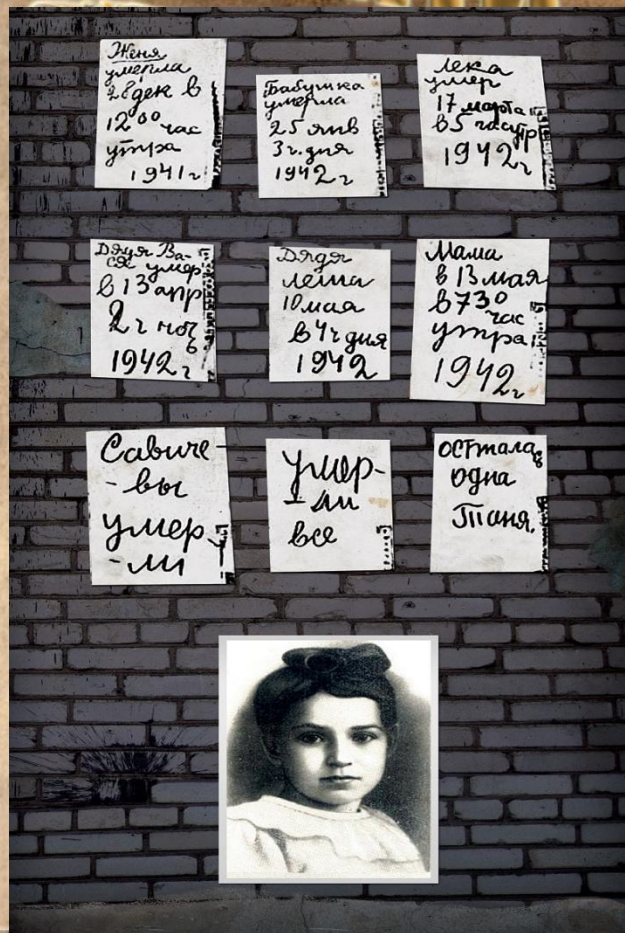 Женя
умерла
28 дек в
12 00 час
утра
1941 г
Бабушка
умерла
25 янв
3 ч. дня
1942 г
Лека
умер
17 марта
в 5 час утр
1942 г
Дядя Ва-
ся умер
в 13 апр
2 ч ночь
1942 г
Дядя
Леша
10 мая
в 4 ч дня
1942
Мама
в 13 мая
в 7 30
час
утра
1942 г
Савиче-
-вы
умер
-ли
умер-
-ли
все
осталась
одна
Таня.